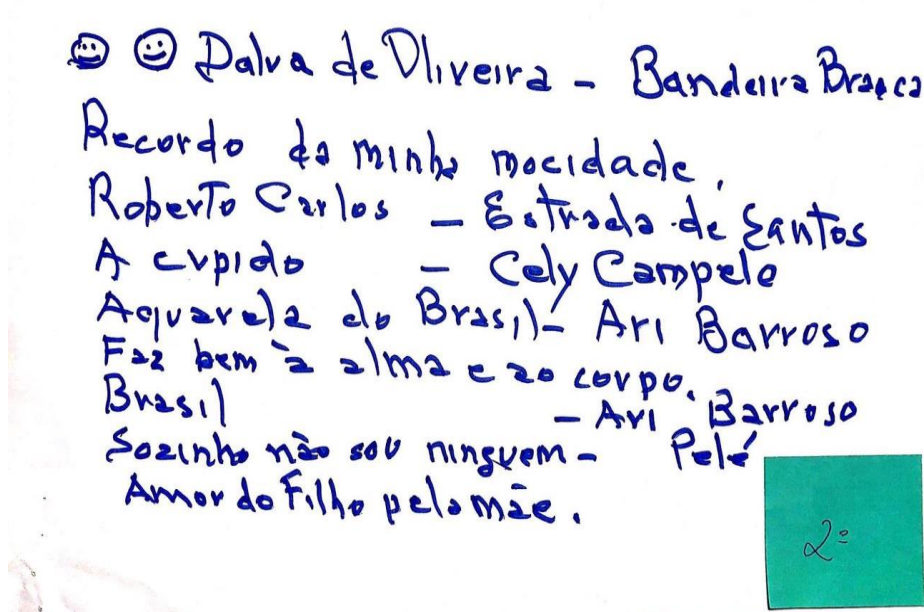 Dalva de Oliveira - Bandeira Branca
Recordo da minha mocidade.
Roberto Carlos - Estrada de Santos
A cupido - Cely Campelo
Aquarela do Brasil - Ari Barroso
Faz bem à alma e ao corpo.
Brasil - Ari Barroso
Sozinho não sou ninguem - Pelé
Amor do Filho pela mãe.
2º